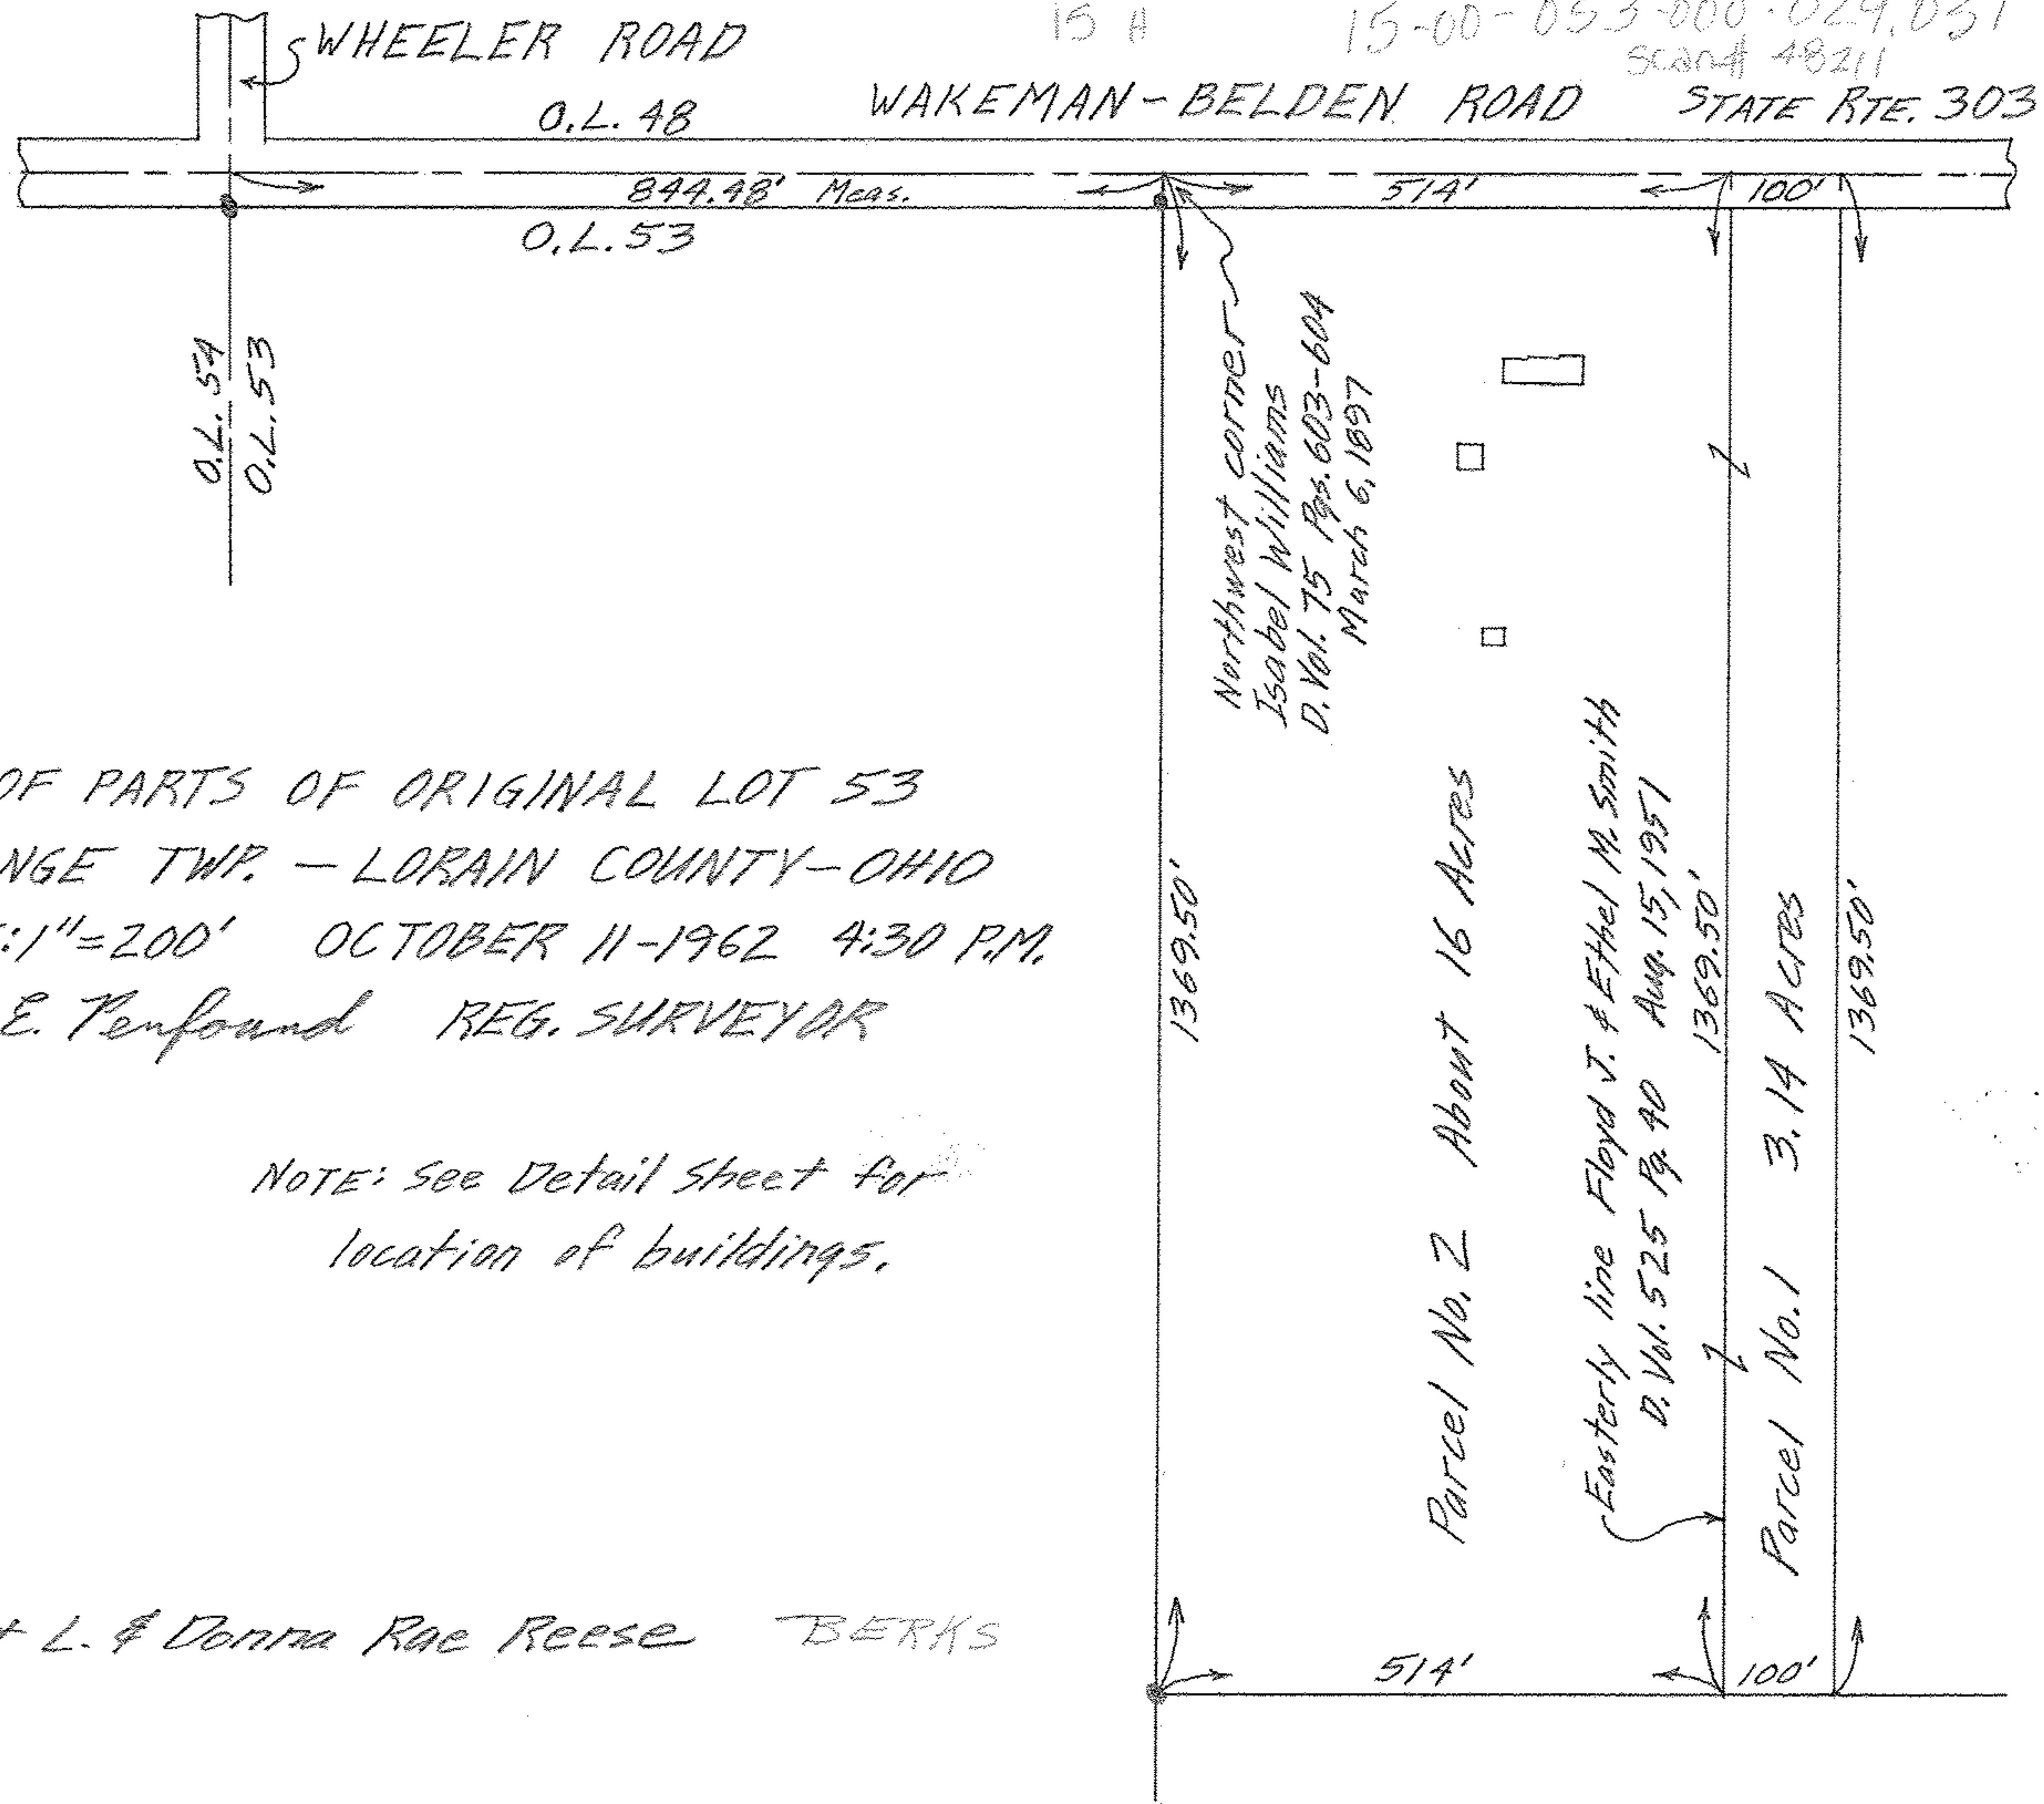 15 A 15-00-053-000-029,031
scan# 48211
WHEELER ROAD
O.L. 48 WAKEMAN-BELDEN ROAD STATE RTE. 303
844.48' Meas. 514' 100'
O.L. 53
O.L. 54
O.L. 53
Northwest corner
Isabel Williams
D. Vol. 75 Pgs. 603-604
March 6, 1897
OF PARTS OF ORIGINAL LOT 53
NGE TWP. - LORAIN COUNTY - OHIO
:1"=200' OCTOBER 11-1962 4:30 P.M.
E. Penfound REG. SURVEYOR
NOTE: See Detail Sheet for
location of buildings.
1369.50'
Parcel No. 2 About 16 Acres
Easterly line Floyd J. & Ethel M. Smith
D. Vol. 525 Pg. 40 Aug. 15, 1951
1369.50'
Parcel No. 1 3.14 Acres
1369.50'
L. & Donna Rae Reese BERKS
514' 100'